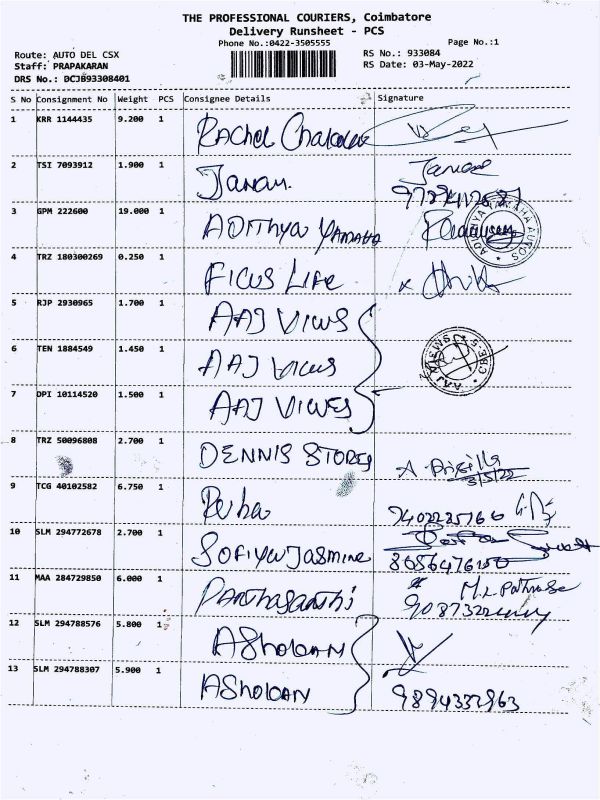 THE PROFESSIONAL COURIERS, Coimbatore
Delivery Runsheet - PCS
Phone No.:0422-3505555
Page No.:1
Route: AUTO DEL CSX
Staff: PRAPAKARAN
DRS No.: DCJB93308401
RS No.: 933084
RS Date: 03-May-2022
S No Consignment No Weight PCS Consignee Details Signature
1 KRR 1144435 9.200 1 Rachel
2 TSI 7093912 1.900 1 Janani
3 GPM 222600 19.000 1 Adithya Yamaha
ADITHYA YAMAHA AUTOS
4 TRZ 180300269 0.250 1 Ficus Life
5 RJP 2930965 1.700 1 AAJ
6 TEN 1884549 1.450 1 AAJ
7 DPI 10114520 1.500 1 AAJ
8 TRZ 50096808 2.700 1 DENNIS STORES
3/5/22
9 TCG 40102582 6.750 1
10 SLM 294772678 2.700 1 Sofiya Jasmine
11 MAA 284729850 6.000 1
12 SLM 294788576 5.800 1 Ashokan
13 SLM 294788307 5.900 1 Ashokan